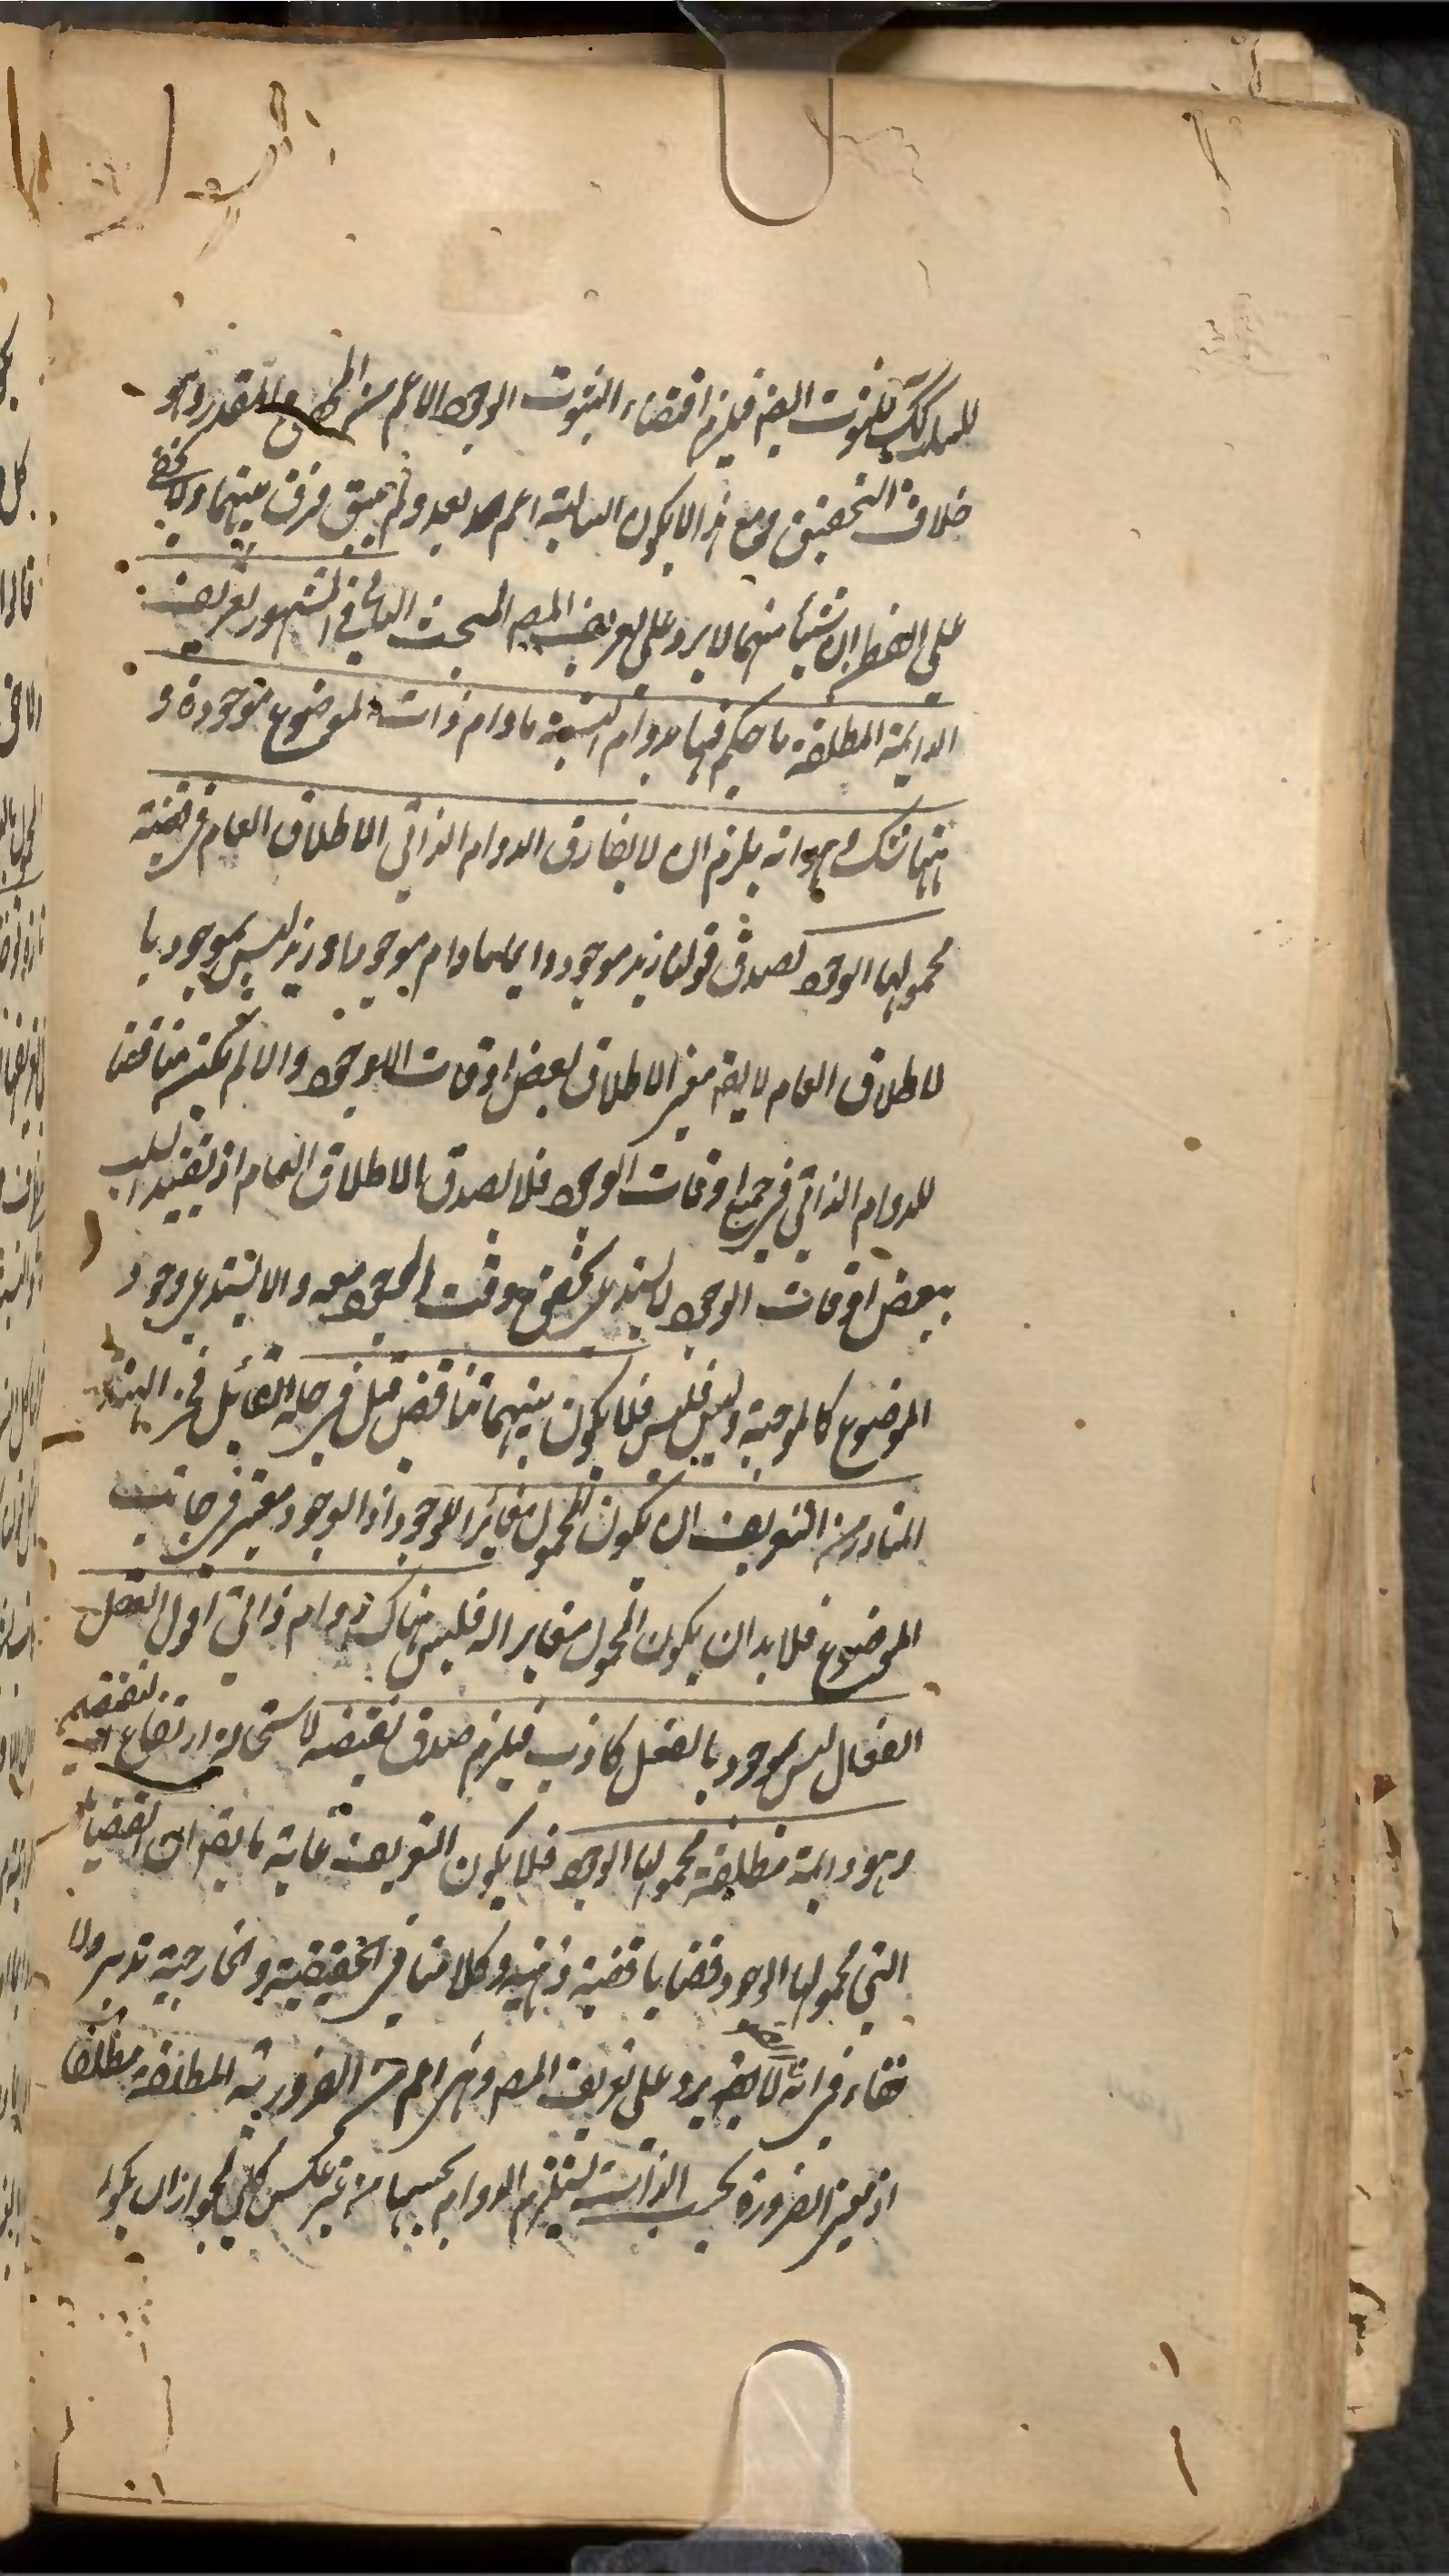 للمدرك للثبوت ايضا فيلزم اقتضاء الثبوت الوجود الاعم من المحقق والمقدر وهو
خلاف التحقيق ومع هذا لا يكون السالبة اعم بعد ولم يبق فرق بينهما ولا يخفى
على الفطن ان شيئا منهما لا يرد على تعريف المص المبحث الثاني في المشهور تعريف
الدائمة المطلقة ما حكم فيها بدوام النسبة ما دام ذات الموضوع موجودة و
ههنا شك وهو انه يلزم ان لا يفارق الدوام الذاتي الاطلاق العام في قضية
محمولها الوجود لصدق قولنا زيد موجود دائما ما دام موجودا وزيد ليس بموجود با
لاطلاق العام لا يقه معنى الاطلاق بعض اوقات الوجود والا لم يكن مناقضا
للدوام الذاتي في جميع اوقات الوجود فلا يصدق الاطلاق العام اذ تقييد السلب
ببعض اوقات الوجود لا يستدعى تحقق وقت الوجود معه والا يستدعى وجود
الموضوع كالموجبة وليس فليس فلا يكون بينهما تناقض قيل في حله القائل فخر الهند
المتبادر من التعريف ان يكون المحمول مغائرا للوجود اذ الوجود معتبر في جانب
الموضوع فلا بد ان يكون المحمول مغايرا له فليس هناك دوام ذاتي اقول العقل
الفعال ليس بموجود بالفعل كاذب فيلزم صدق نقيضه لاستحالة ارتفاع النقيضين
وهو دائمة مطلقة محمولها الوجود فلا يكون التعريف غاية ما يقه ان القضايا
التي محمولها الوجود قضايا قضية ذهنية وكلامنا في الحقيقية والخارجية تدبر ولا
خفاء في انه لا يقه يرد على تعريف المص وهى اعم من الضرورية المطلقة مطلقا
اذ معنى الضرورة بحسب الذات يستلزم الدوام بحسبها من غير عكس كلي لجواز ان يكون